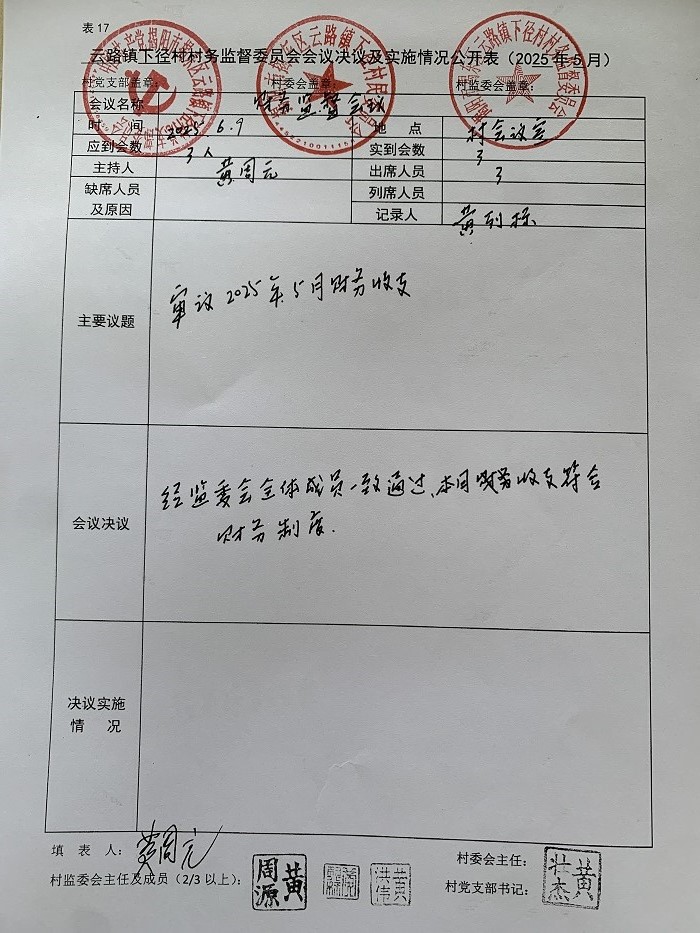 表 17
云路镇下径村村务监督委员会会议决议及实施情况公开表（2025 年 5 月）
村党支部盖章： 村委会盖章： 村监委会盖章：
会议名称 财务监督会议
时 间 2025 6.9 地 点 村会议室
应到会数 3人 实到会数 3
主持人 黄周元 出席人员 3
缺席人员 列席人员
及原因 记录人 黄列标
主要议题 审议2025年5月财务收支
会议决议 经监委会全体成员一致通过、本月财务收支符合
财务制度.
决议实施
情 况
填 表 人： 黄周元
村监委会主任及成员（2/3 以上）： 黄周源 黄洪伟
村委会主任：
村党支部书记： 黄壮杰